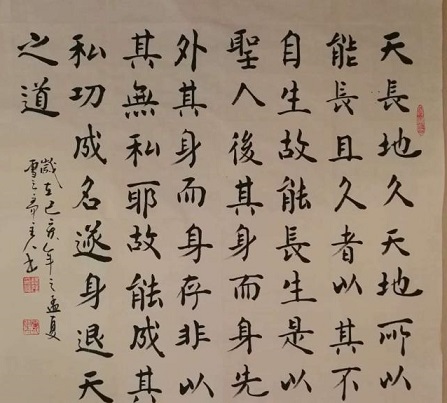 天長地久天地所以
能長且久者以其不
自生故能長生是以
聖人後其身而身先
外其身而身存非以
其無私耶故能成其
私功成名遂身退天
之道
歲在己亥年之孟夏
主人书